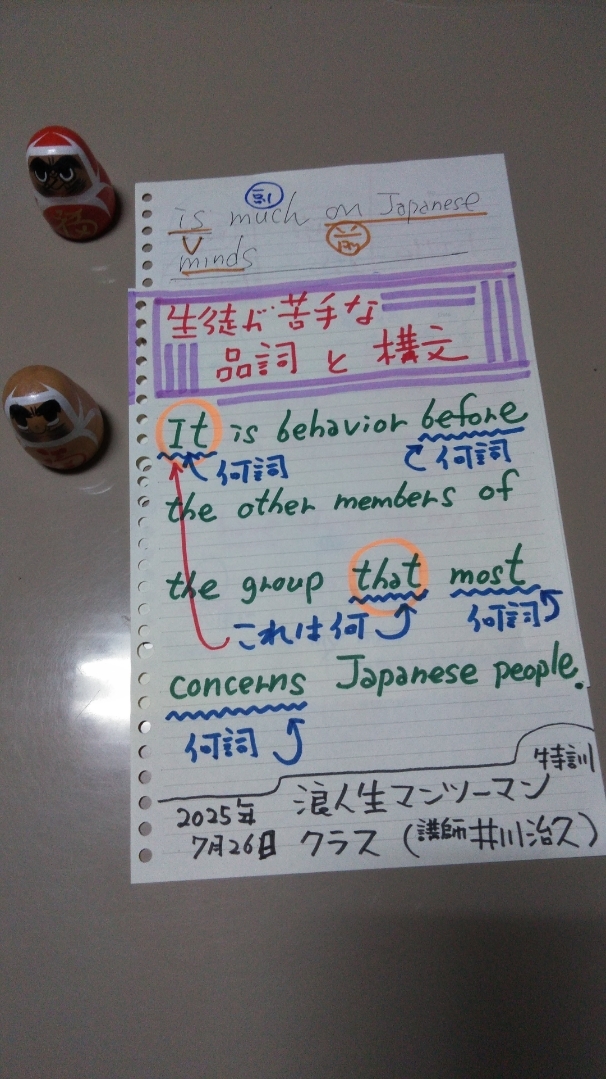 副
is much on Japanese
V
minds
生徒が苦手な
品詞と構文
It is behavior before
何詞 何詞
the other members of
the group that most
これは何 何詞
concerns Japanese people.
何詞
特訓
2025年 浪人生マンツーマン
7月26日 クラス (講師 井川治久)